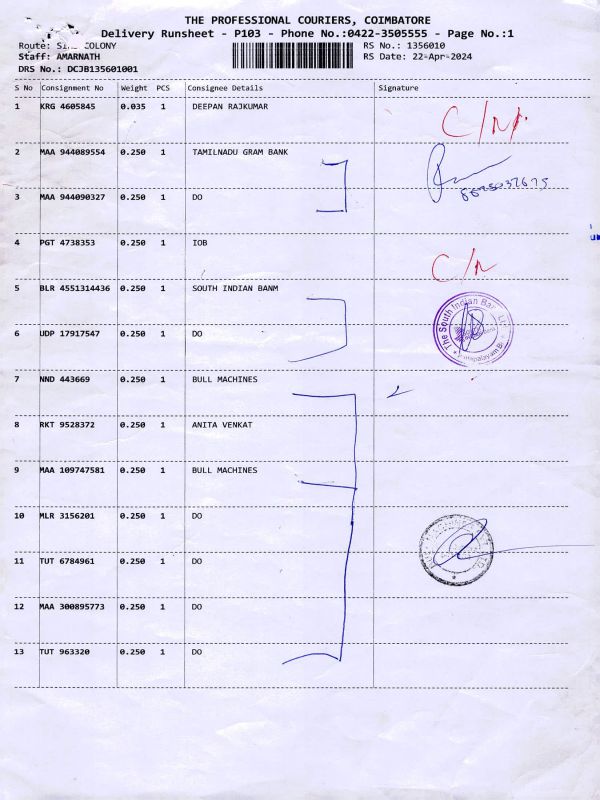 THE PROFESSIONAL COURIERS, COIMBATORE
Delivery Runsheet - P103 - Phone No.:0422-3505555 - Page No.:1
Route: COLONY
RS No.: 1356010
Staff: AMARNATH
RS Date: 22-Apr-2024
DRS No.: DCJB135601001
S No Consignment No Weight PCS Consignee Details Signature
1 KRG 4605845 0.035 1 DEEPAN RAJKUMAR
C/N
2 MAA 944089554 0.250 1 TAMILNADU GRAM BANK
3 MAA 944090327 0.250 1 DO
4 PGT 4738353 0.250 1 IOB
C/N
5 BLR 4551314436 0.250 1 SOUTH INDIAN BANM
The South Indian
6 UDP 17917547 0.250 1 DO
7 NND 443669 0.250 1 BULL MACHINES
8 RKT 9528372 0.250 1 ANITA VENKAT
9 MAA 109747581 0.250 1 BULL MACHINES
10 MLR 3156201 0.250 1 DO
11 TUT 6784961 0.250 1 DO
12 MAA 300895773 0.250 1 DO
13 TUT 963320 0.250 1 DO